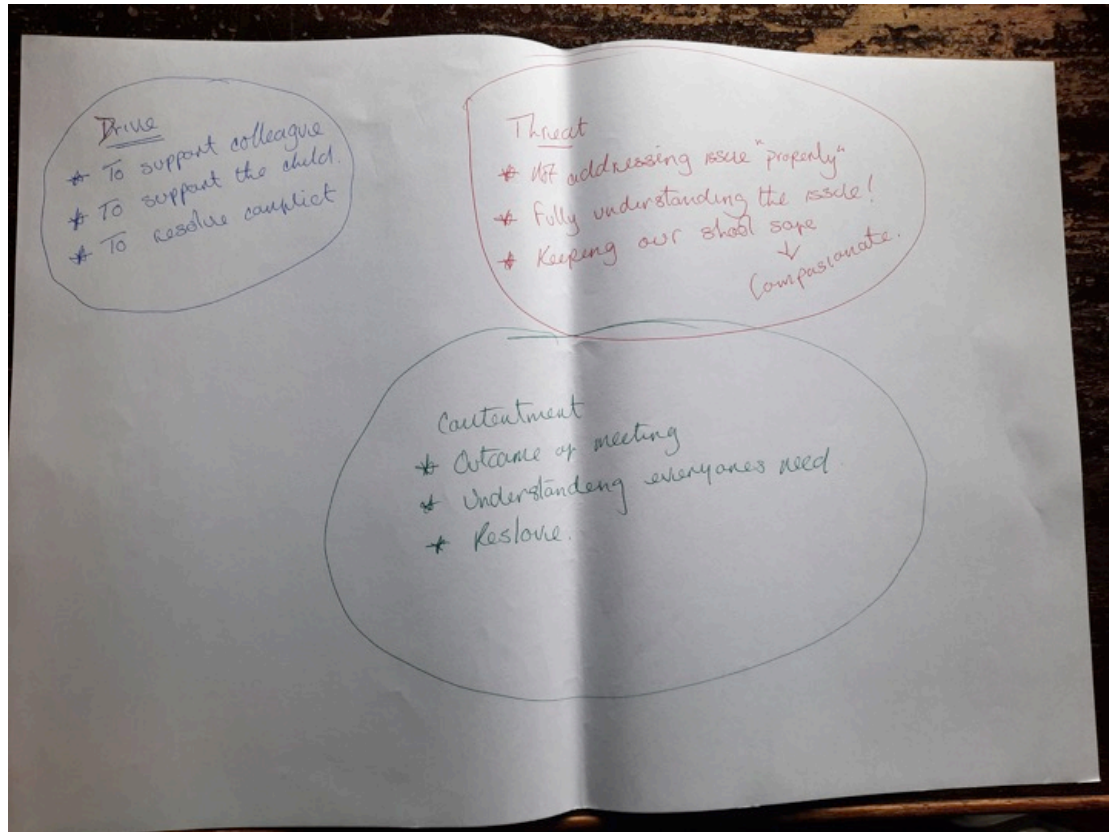 Drive
* To support colleague
* To support the child.
* To resolve conflict
Threat
* Not addressing issue "properly"
* Fully understanding the issue!
* Keeping our shool safe
↓
Compasionate.
Contentment
* Outcome of meeting
* Understandeng everyones need.
* Reslove.